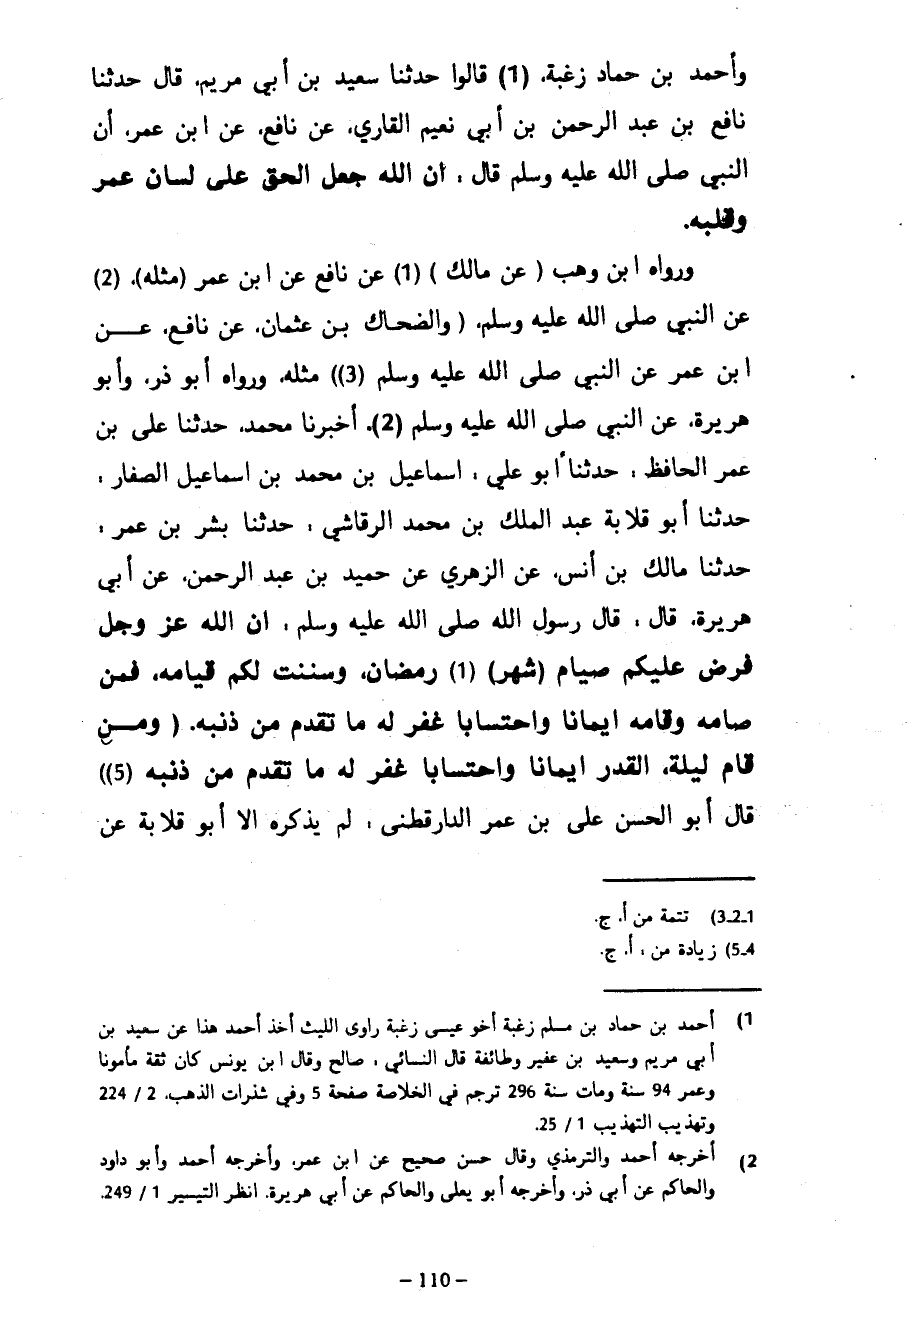 وأحمد بن حماد زغبة، (1) قالوا حدثنا سعيد بن أبي مريم، قال حدثنا
نافع بن عبد الرحمن بن أبي نعيم القاري، عن نافع، عن ابن عمر، أن
النبي صلى الله عليه وسلم قال : ان الله جعل الحق على لسان عمر
وقلبه.
ورواه ابن وهب ( عن مالك ) (1) عن نافع عن ابن عمر (مثله)، (2)
عن النبي صلى الله عليه وسلم، ( والضحاك بن عثمان، عن نافع، عــن
ابن عمر عن النبي صلى الله عليه وسلم (3)) مثله، ورواه أبو ذر، وأبو
هريرة، عن النبي صلى الله عليه وسلم (2)، أخبرنا محمد، حدثنا على بن
عمر الحافظ : حدثنا أبو علي ، اسماعيل بن محمد بن اسماعيل الصفار :
حدثنا أبو قلابة عبد الملك بن محمد الرقاشي : حدثنا بشر بن عمر :
حدثنا مالك بن أنس، عن الزهري عن حميد بن عبد الرحمن، عن أبي
هريرة، قال : قال رسول الله صلى الله عليه وسلم : ان الله عز وجل
فرض عليكم صيام (شهر) (1) رمضان، وسننت لكم قيامه، فمن
صامه وقامه ايمانا واحتسابا غفر له ما تقدم من ذنبه. ( ومــن
قام ليلة، القدر ايمانا واحتسابا غفر له ما تقدم من ذنبه (5))
قال أبو الحسن على بن عمر الدارقطنى : لم يذكره الا أبو قلابة عن
1ـ2ـ3) تتمة من أ. ج.
4ـ5) زيادة من : أ. ج.
1) أحمد بن حماد بن مسلم زغبة أخو عيسى زغبة راوى الليث أخذ أحمد هذا عن سعيد بن
أبي مريم وسعيد بن عفير وطائفة قال النسائي : صالح وقال ابن يونس كان ثقة مأمونا
وعمر 94 سنة ومات سنة 296 ترجم في الخلاصة صفحة 5 وفي شذرات الذهب، 2 / 224
وتهذيب التهذيب 1 / 25.
2) أخرجه أحمد والترمذي وقال حسن صحيح عن ابن عمر، وأخرجه أحمد وأبو داود
والحاكم عن أبي ذر، وأخرجه أبو يعلى والحاكم عن أبي هريرة. انظر التيسير 1 / 249.
– 110 –